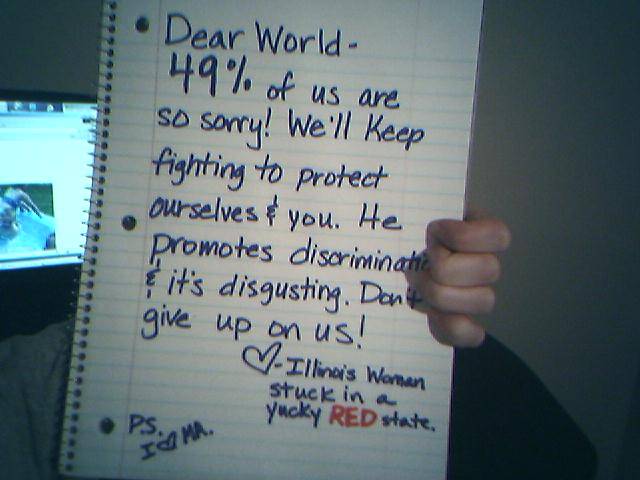 Dear World-
49% of us are
so sorry! We'll Keep
fighting to protect
ourselves & you. He
promotes discriminati
& it's disgusting. Don't
give up on us!
♡-Illinois Woman
stuck in a
yucky RED state.
P.S.
I ♡ MA.